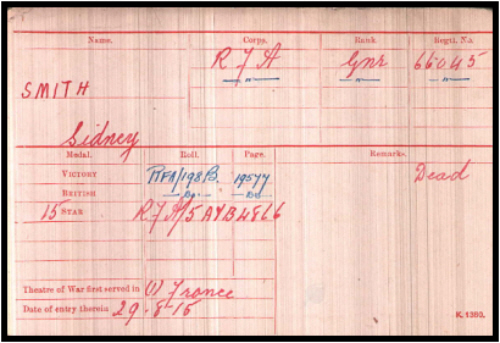 Name. Corps. Rank. Regtl. No.
SMITH R F A Gnr 66045
" " "
Sidney
Medal. Roll. Page. Remarks.
VICTORY RFA/198B. 19577 Dead
BRITISH Do Do
15 STAR R F A/5A
Theatre of War first served in (1) France
Date of entry therein 29-8-15
K. 1380.